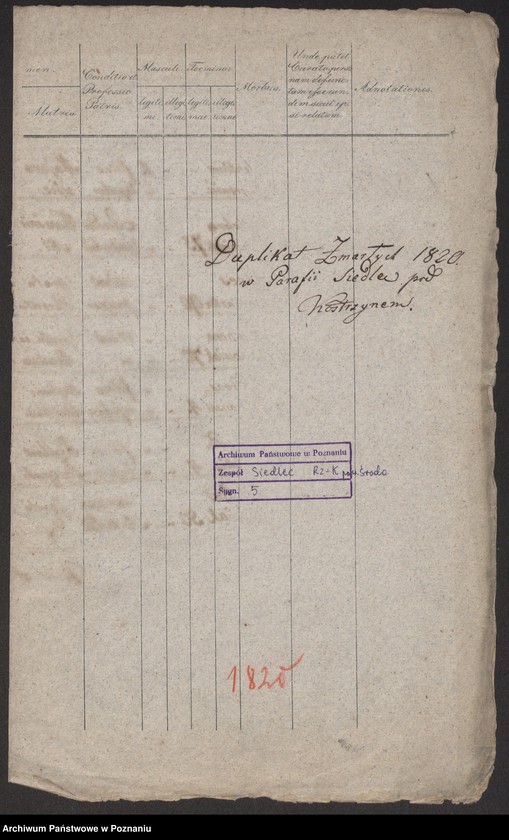 men.
Matris
Conditio et
Professio
Patris.
Masculi
legiti
mi
illegi
timi
Foeminae
legiti
mae
illegi
timae
Morbus.
Unde patet
Curato perso
nam defunc
tam esse can
dem sicut ip
si relatum
Adnotationes.
Duplikat Zmarłych 1820.
w Parafii Siedlec pod
Kostrzynem.
Archiwum Państwowe w Poznaniu
Zespół Siedlec Rz-K pow. Środa
Sygn. 5
1820
Archiwum Państwowe w Poznaniu